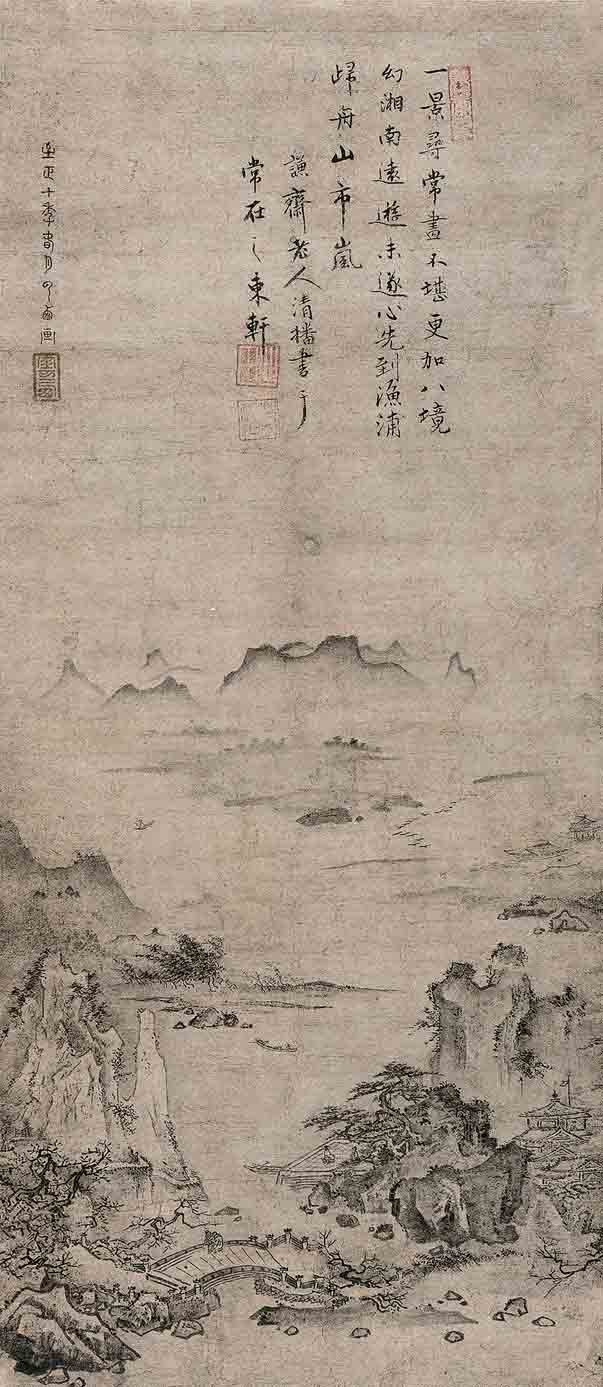 一景尋常畫不堪更加八境
幻湘南遠遊未遂心先到漁浦
歸舟山市嵐
謙齋老人清播書于
常在之東軒
至正十季春月画